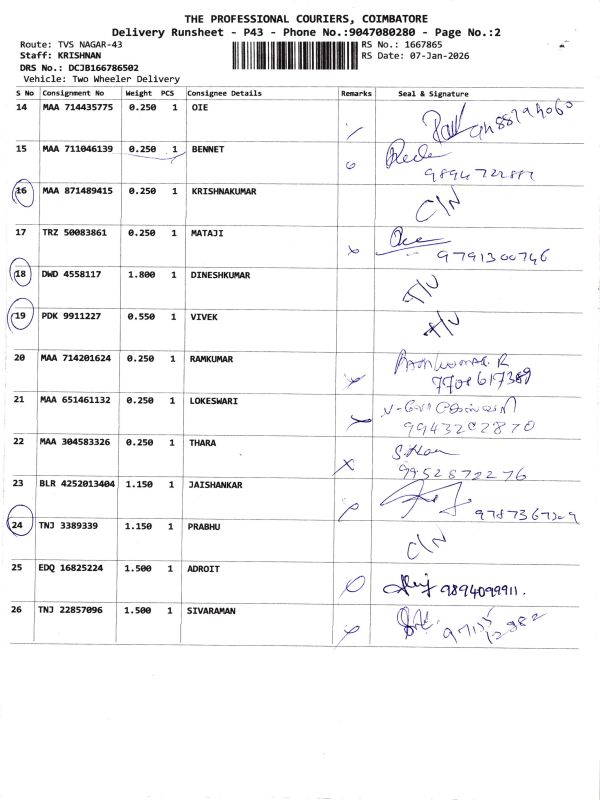 THE PROFESSIONAL COURIERS, COIMBATORE
Delivery Runsheet - P43 - Phone No.:9047080280 - Page No.:2
Route: TVS NAGAR-43 RS No.: 1667865
Staff: KRISHNAN RS Date: 07-Jan-2026
DRS No.: DCJB166786502
Vehicle: Two Wheeler Delivery
S No Consignment No Weight PCS Consignee Details Remarks Seal & Signature
14 MAA 714435775 0.250 1 OIE
15 MAA 711046139 0.250 1 BENNET
16 MAA 871489415 0.250 1 KRISHNAKUMAR C/N
17 TRZ 50083861 0.250 1 MATAJI
9791300746
18 DWD 4558117 1.800 1 DINESHKUMAR
19 PDK 9911227 0.550 1 VIVEK
20 MAA 714201624 0.250 1 RAMKUMAR
7708617389
21 MAA 651461132 0.250 1 LOKESWARI
9943202870
22 MAA 304583326 0.250 1 THARA
9952872276
23 BLR 4252013404 1.150 1 JAISHANKAR
24 TNJ 3389339 1.150 1 PRABHU C/N
25 EDQ 16825224 1.500 1 ADROIT 9894099911.
26 TNJ 22857096 1.500 1 SIVARAMAN